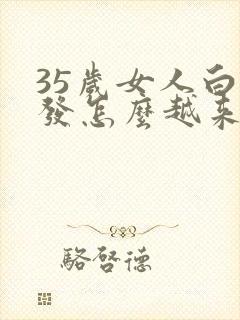 35歲女人白
發怎麼越來
駱啓德